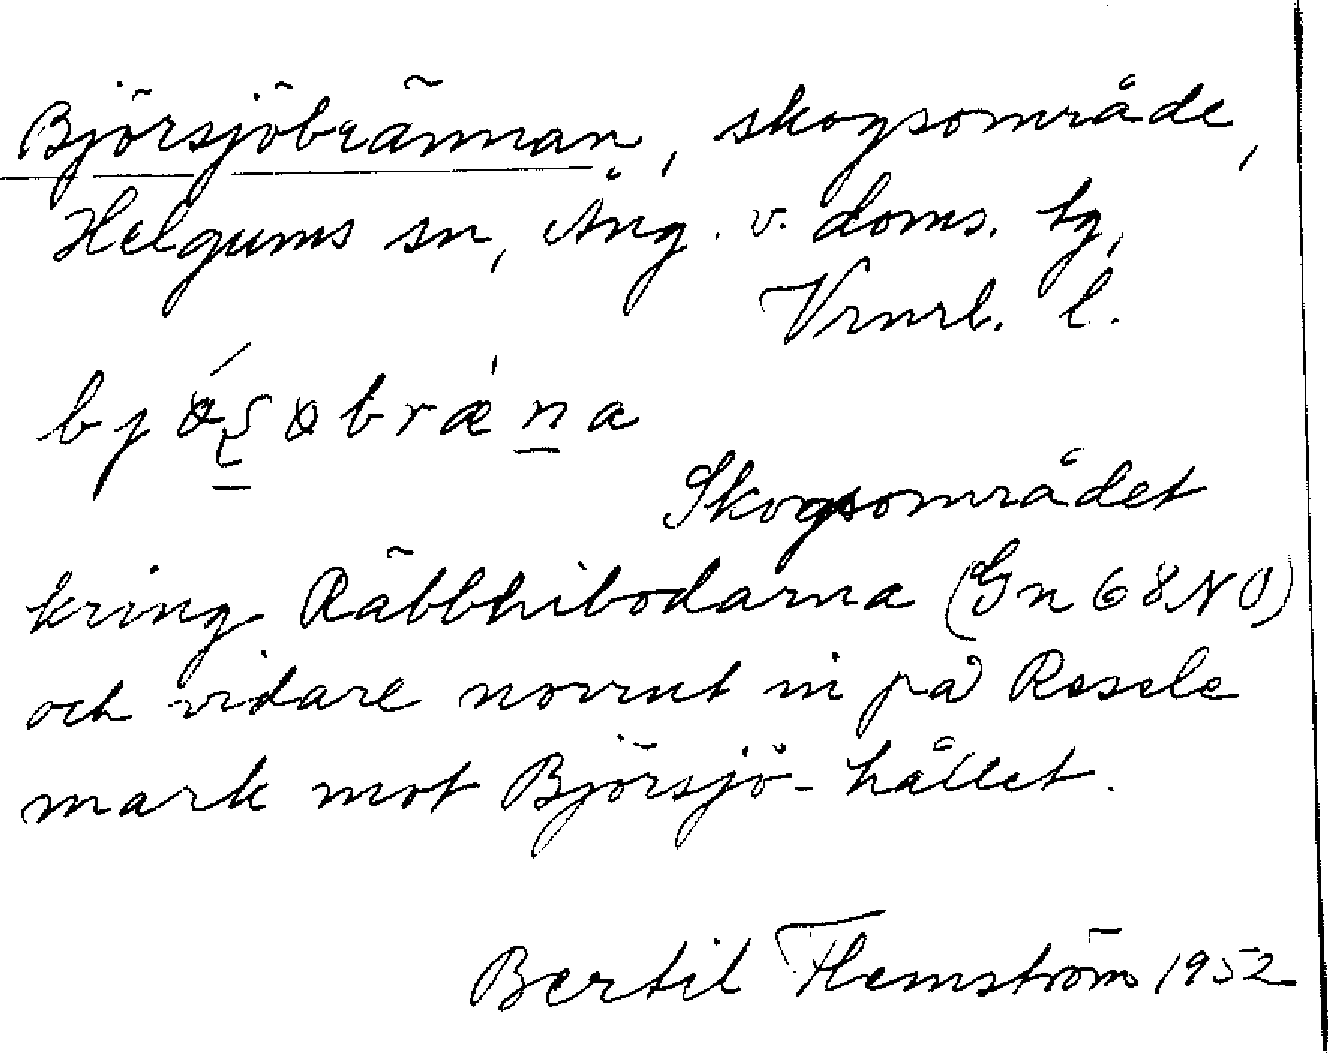 Björsjöbrännan, skogsområde,
Helgums sn, Ång. v. doms. tg,
Vrnrl. l.
Skogsområdet
kring Räbbhibodarna (Gn 68 NO)
och vidare norrut in på Resele
mark mot Björsjö-hållet.
Bertil Flemström 1952